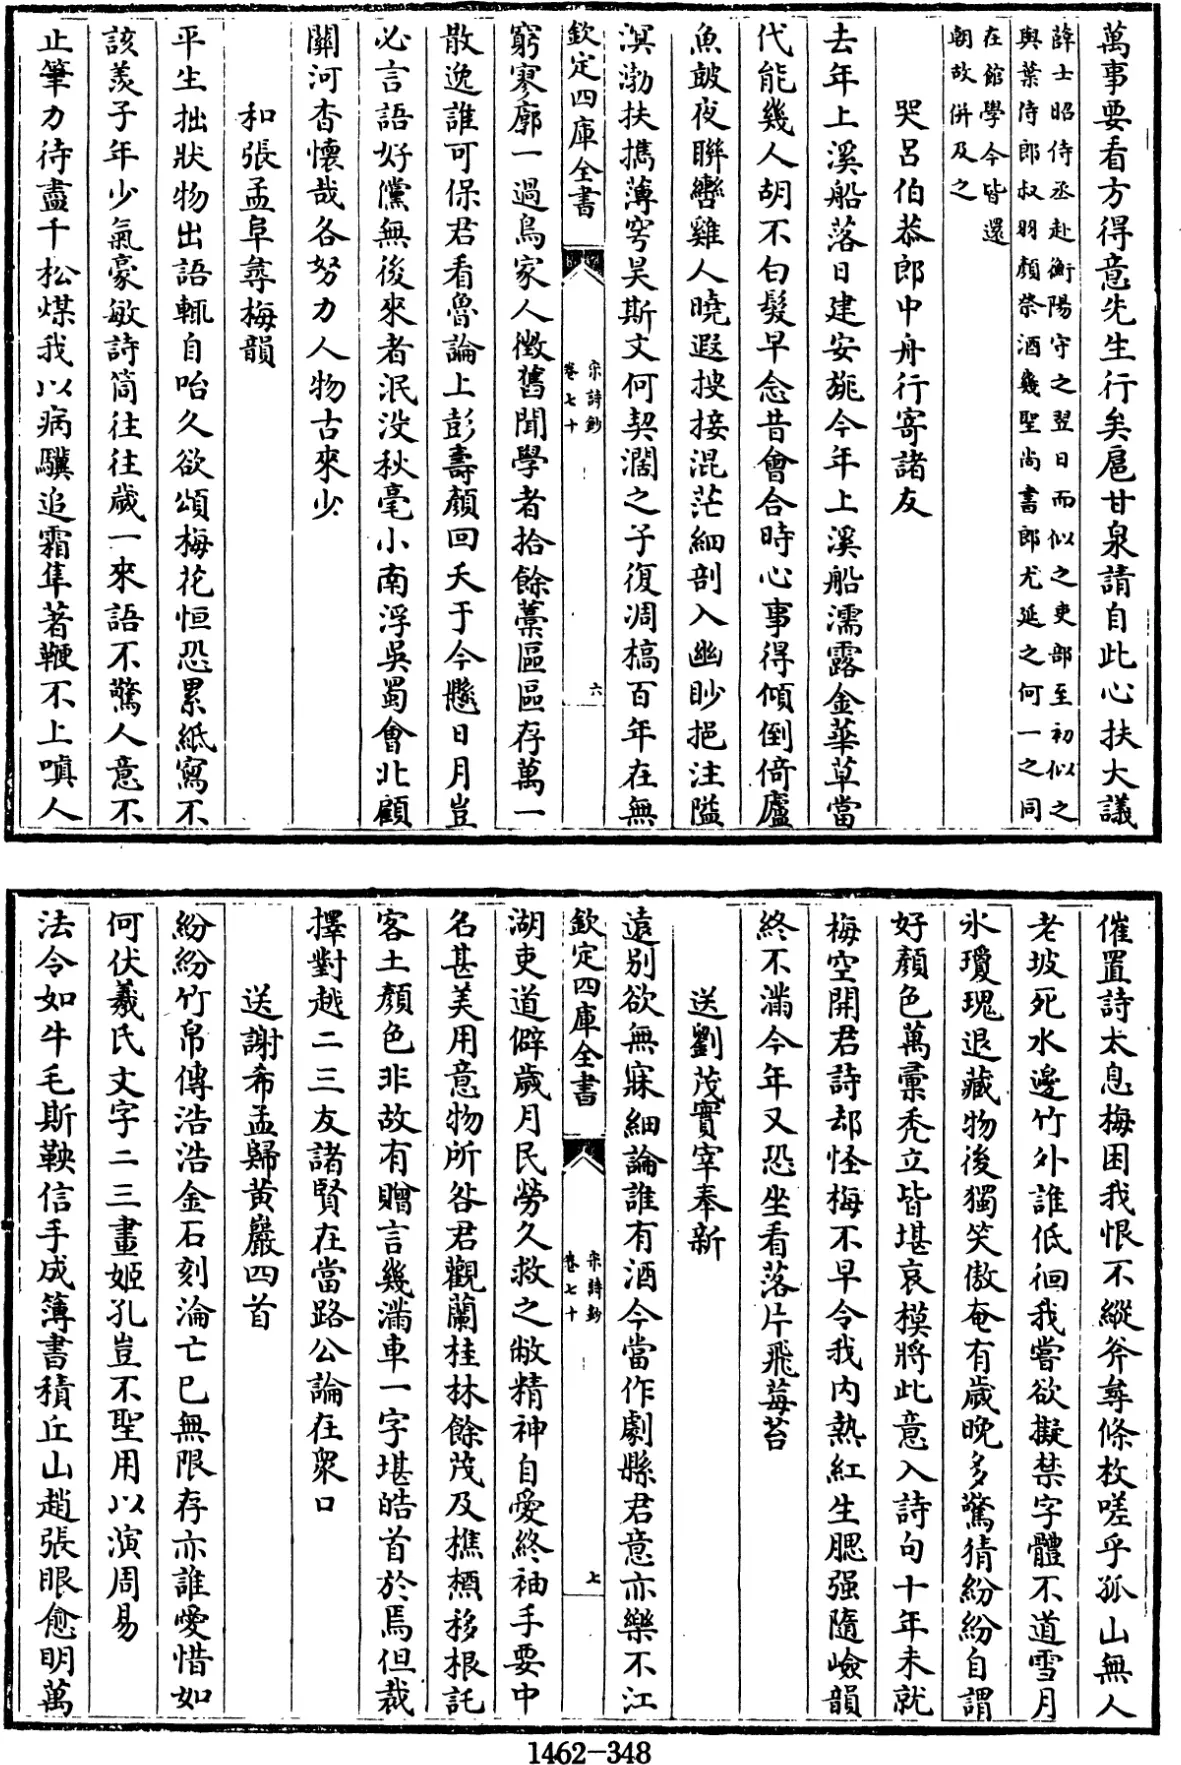 萬事要看方得意先生行矣扈甘泉請自此心扶大議
薛士昭侍丞赴衡陽守之翌日而似之吏部至初似之
與葉侍郎叔羽顏祭酒幾聖尚書郎尤延之何一之同
在館學今皆還
朝故併及之
哭呂伯恭郎中舟行寄諸友
去年上溪船落日建安旐今年上溪船濡露金華草當
代能幾人胡不白髮早念昔會合時心事得傾倒倚廬
魚鼓夜聨轡雞人曉遐搜接混茫細剖入幽眇挹注隘
溟渤扶攜薄穹昊斯文何契濶之子復凋槁百年在無
欽定四庫全書
宋詩鈔
卷七十
六
窮寥廓一過鳥家人徵舊聞學者拾餘藁區區存萬一
散逸誰可保君看魯論上彭壽顏回夭于今懸日月豈
必言語好儻無後來者泯没秋毫小南浮吳蜀會北顧
關河杳懷哉各努力人物古來少
和張孟阜尋梅韻
平生拙狀物出語輒自咍久欲頌梅花恒恐累紙寫不
該羨子年少氣豪敏詩筒往往歲一來語不驚人意不
止筆力待盡千松煤我以病驥追霜隼著鞭不上嗔人
催置詩太息梅困我恨不縱斧尋條枚嗟乎孤山無人
老坡死水邊竹外誰低徊我嘗欲擬禁字體不道雪月
氷瓊瑰退藏物後獨笑傲奄有歲晚多驚猜紛紛自謂
好顏色萬彙秃立皆堪哀模將此意入詩句十年未就
梅空開君詩却怪梅不早令我内熱紅生腮强隨嶮韻
終不滿今年又恐坐看落片飛莓苔
送劉茂實宰奉新
遠別欲無寐細論誰有酒今當作劇縣君意亦樂不江
欽定四庫全書
宋詩鈔
卷七十
七
湖吏道僻歲月民勞久救之敝精神自愛終袖手要中
名甚美用意物所咎君觀蘭桂林餘茂及樵槱移根託
客土顏色非故有贈言幾滿車一字堪皓首於焉但裁
擇對越二三友諸賢在當路公論在衆口
送謝希孟歸黃巖四首
紛紛竹帛傳浩浩金石刻淪亡已無限存亦誰愛惜如
何伏羲氏文字二三畫姬孔豈不聖用以演周易
法令如牛毛斯鞅信手成簿書積丘山趙張眼愈明萬
1462-348